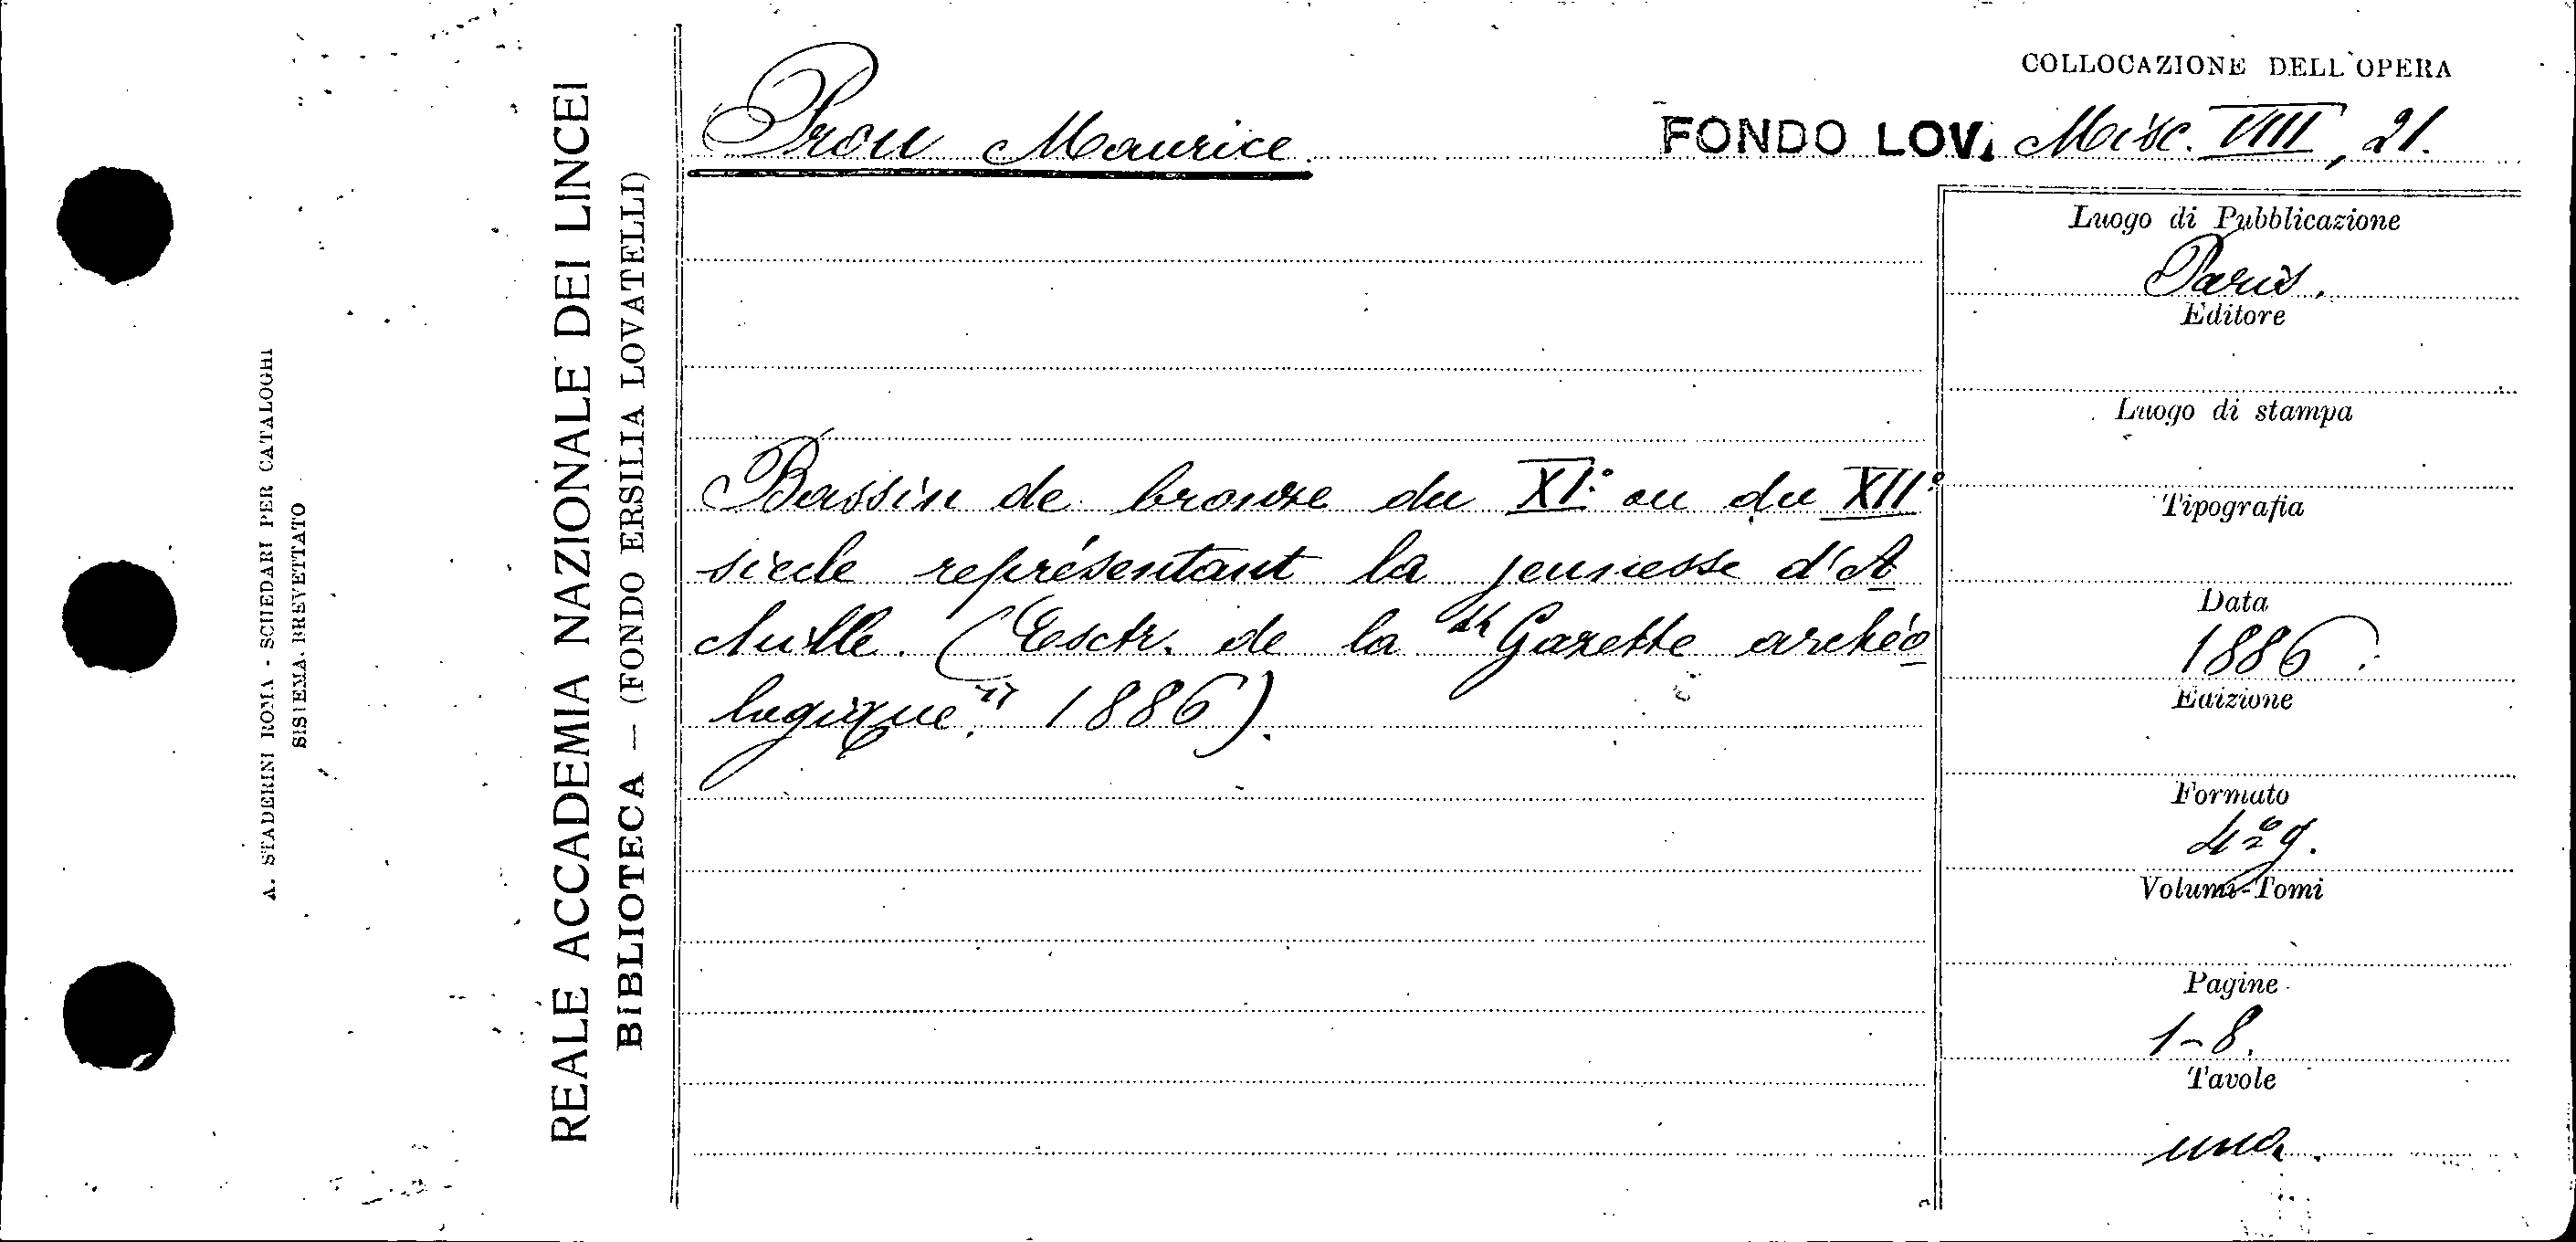 A. STADERINI ROMA - SCHEDARI PER CATALOGHI
SISTEMA BREVETTATO
REALE ACCADEMIA NAZIONALE DEI LINCEI
BIBLIOTECA — (FONDO ERSILIA LOVATELLI)
Prou Maurice
COLLOCAZIONE DELL'OPERA
FONDO LOV. Misc. VIII, 21.
Bassin de bronze du XI.° ou du XII°
siècle représentant la jeunesse d'A
chille. (Esctr. de la "Gazette archéo
logique." 1886).
Luogo di Pubblicazione
Paris.
Editore
Luogo di stampa
Tipografia
Data
1886.
Edizione
Formato
4° g.
Volumi-Tomi
Pagine
1-8.
Tavole
una.